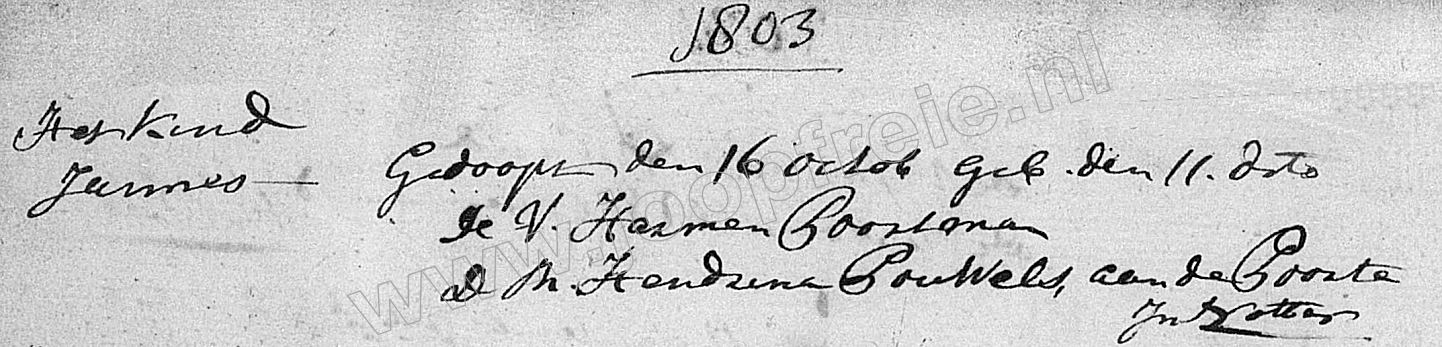 1803
Het kind
Jannes — Gedoopt den 16 octob geb. den 11. dito
de V. Harmen Poortman
d M. Hendrina Pouwels, aan de Poorte
In
www.joopfreie.nl